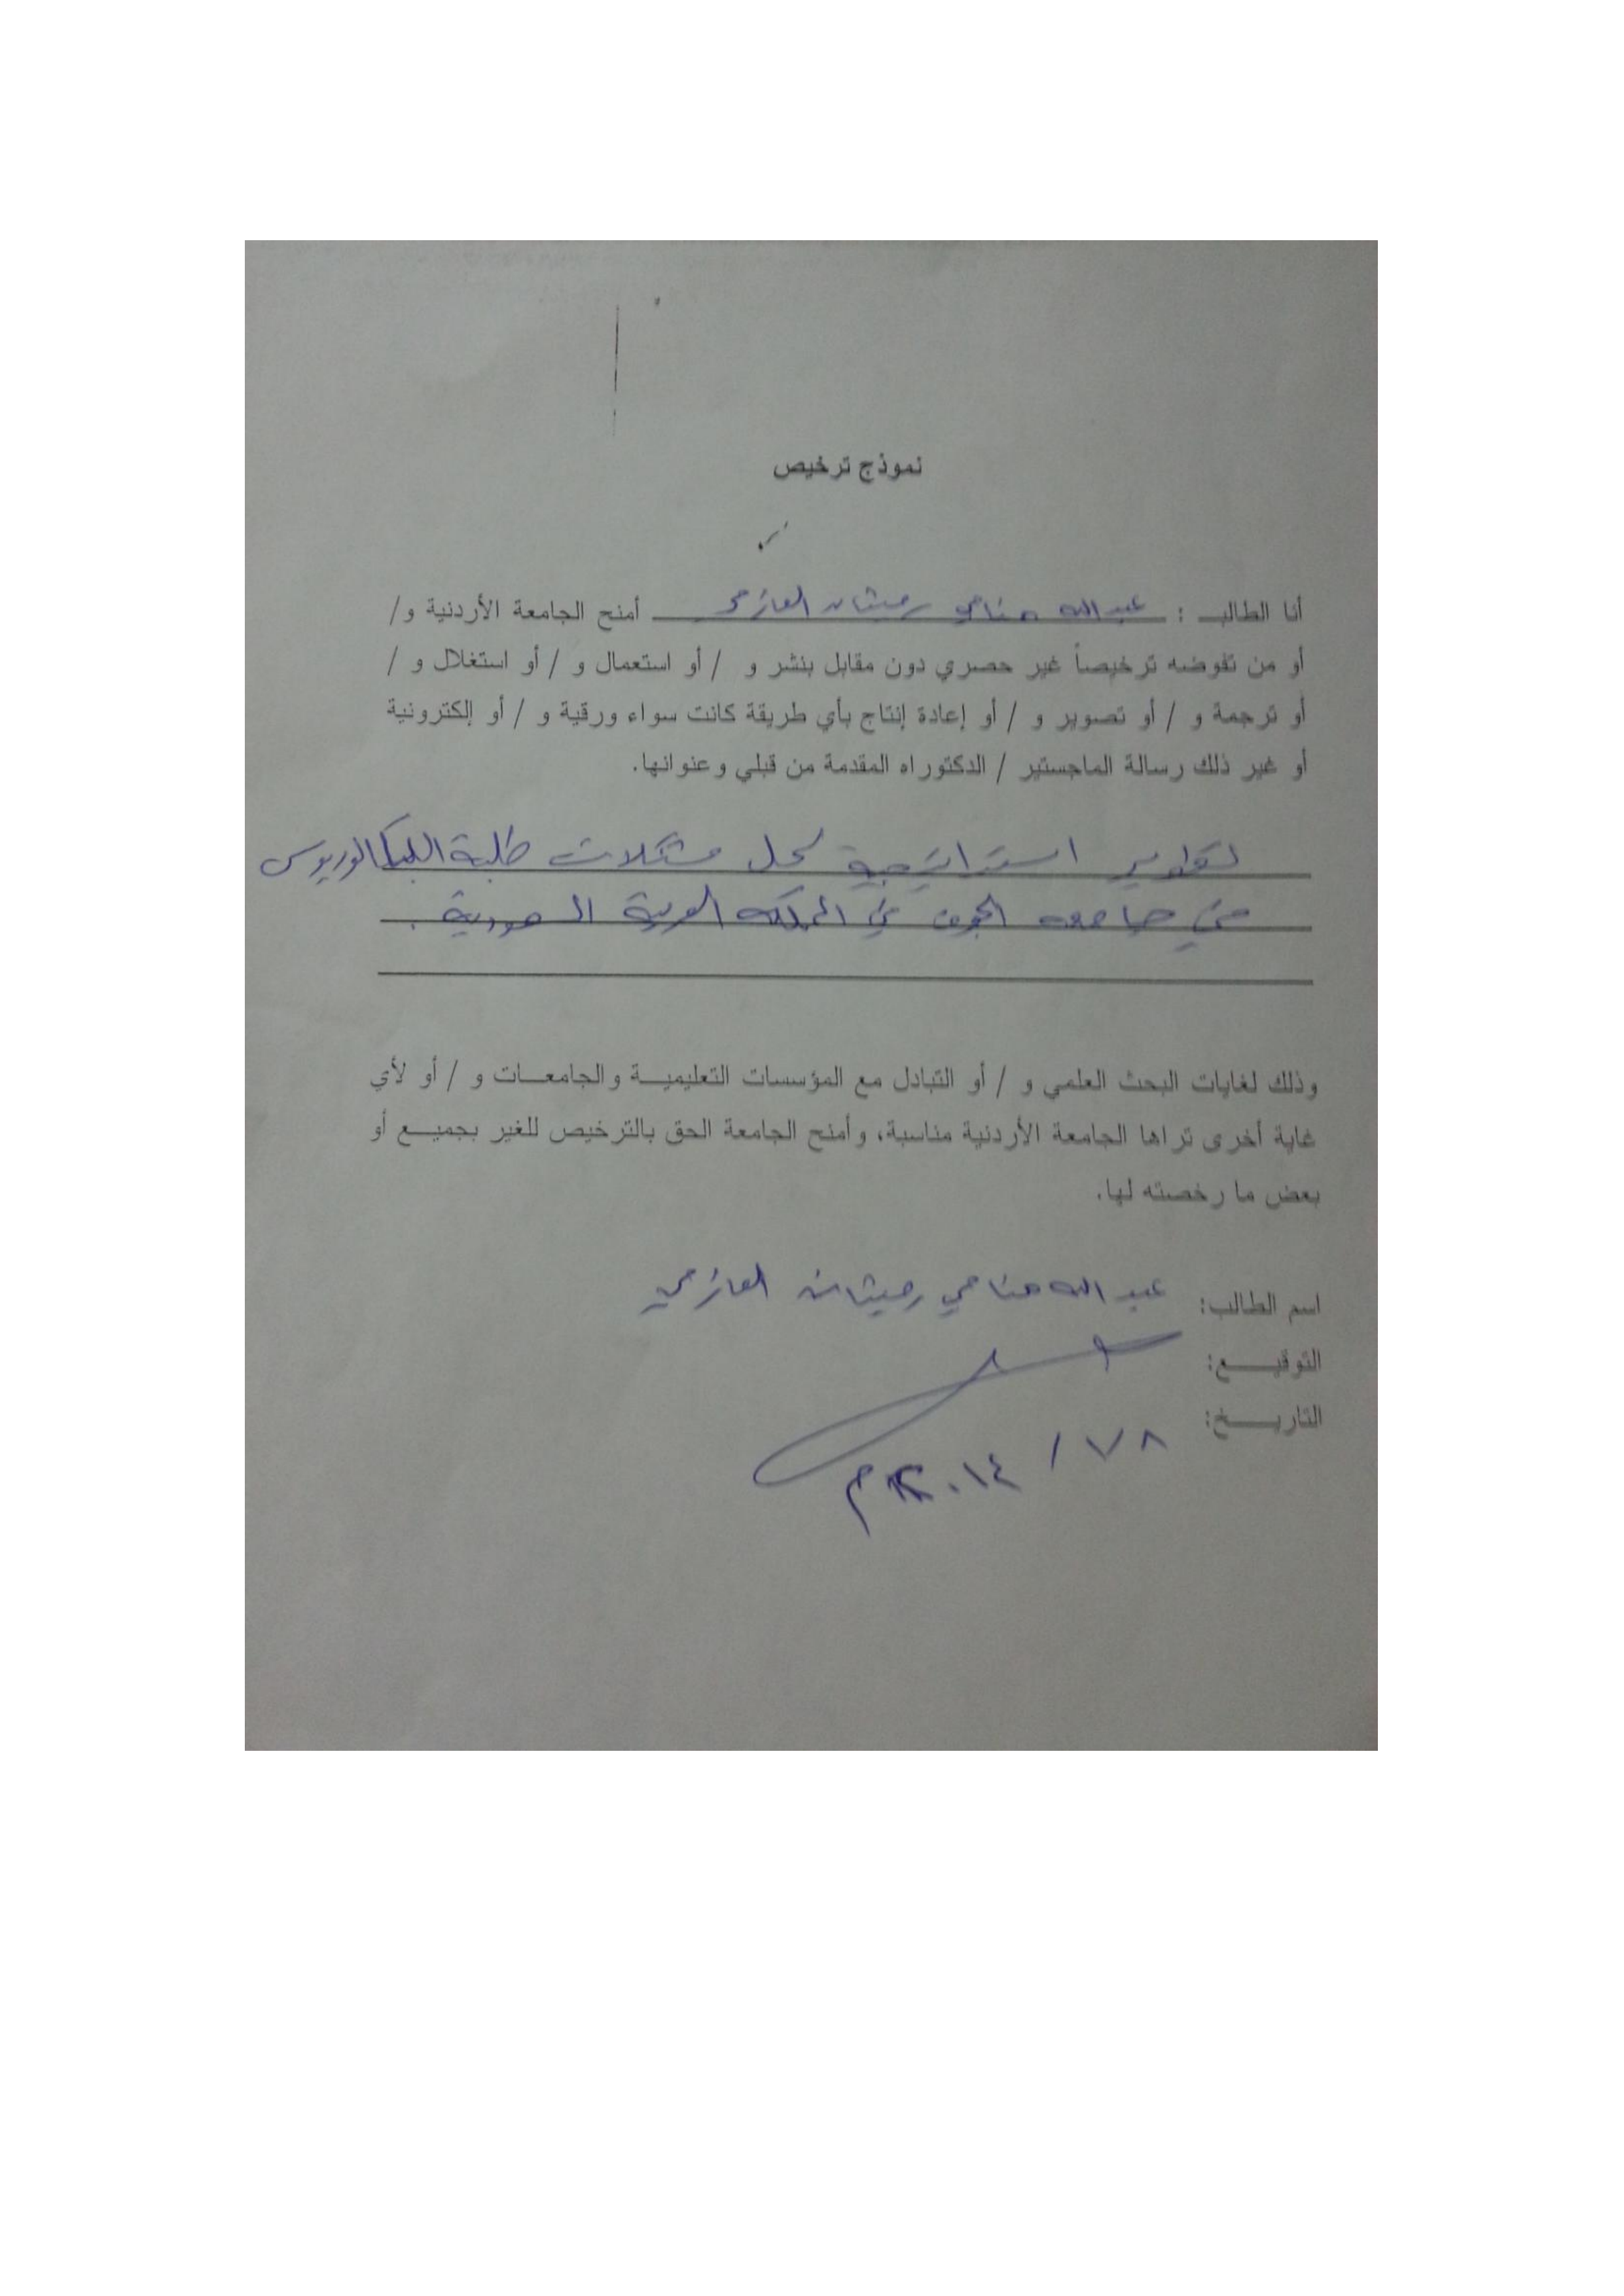 نموذج ترخيص
أنا الطالب : عبدالله مناحي رميثان العازمي أمنح الجامعة الأردنية و/
أو من تفوضه ترخيصاً غير حصري دون مقابل بنشر و / أو استعمال و / أو استغلال و /
أو ترجمة و / أو تصوير و / أو إعادة إنتاج بأي طريقة كانت سواء ورقية و / أو إلكترونية
أو غير ذلك رسالة الماجستير / الدكتوراه المقدمة من قبلي وعنوانها.
تطوير استراتيجية لحل مشكلات طلبة البكالوريوس
في جامعه الجوف في المملكه العربية السعودية .
وذلك لغايات البحث العلمي و / أو التبادل مع المؤسسات التعليمية والجامعات و / أو لأي
غاية أخرى تراها الجامعة الأردنية مناسبة، وأمنح الجامعة الحق بالترخيص للغير بجميع أو
بعض ما رخصته لها.
اسم الطالب: عبدالله مناحي رميثان العازمي
التوقيع:
التاريخ: ٧٨ / ٢٠١٤م